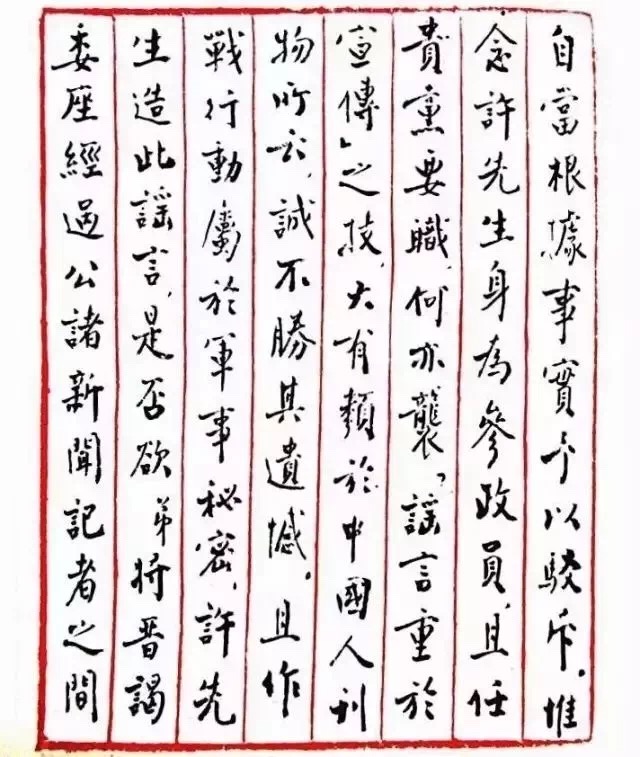 自當根據事實予以駁斥。惟
念許先生身為參政員,且任
貴黨要職,何亦襲「謠言重於
宣傳」之技,大有類於中國人刊
物所云,誠不勝其遺憾。且作
戰行動屬於軍事秘密,許先
生造此謠言,是否欲弟將晋謁
委座經過公諸新聞記者之間